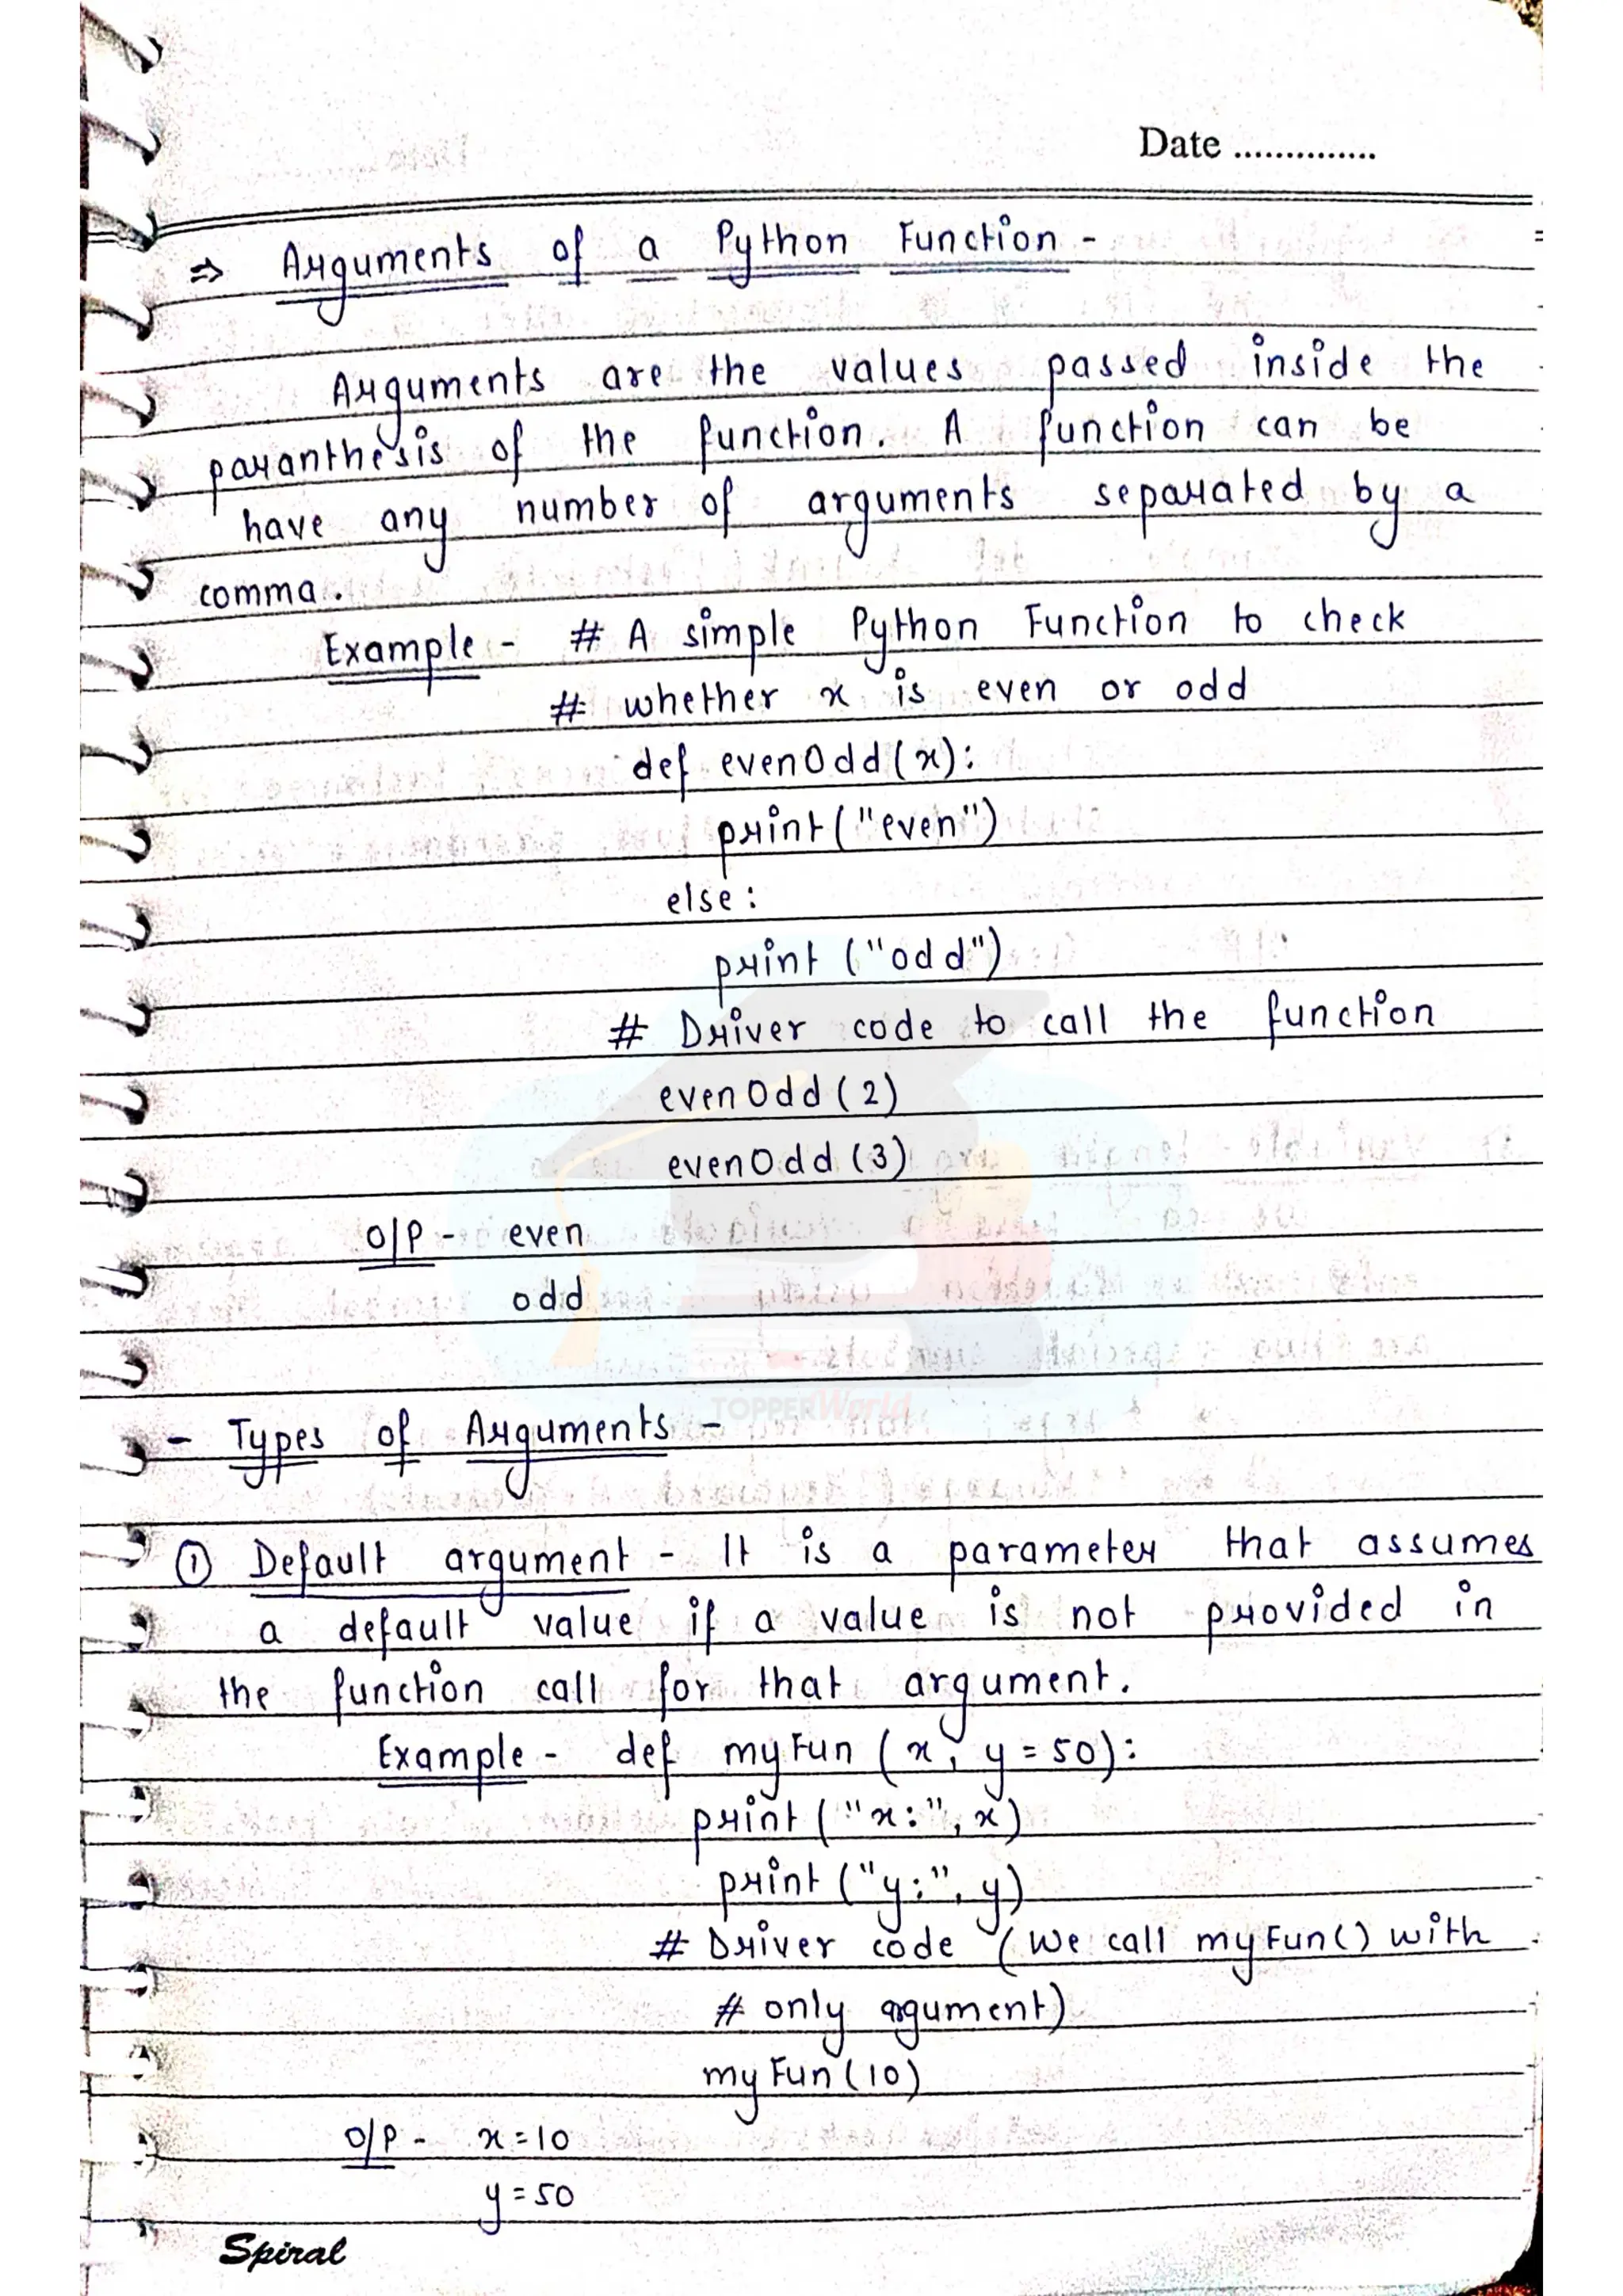 Date ..............
⇒ Arguments of a Python Function -
Arguments are the values passed inside the
paranthesis of the function. A function can be
have any number of arguments separated by a
comma.
Example - # A simple Python Function to check
# whether x is even or odd
def evenOdd(x):
print("even")
else:
print ("odd")
# Driver code to call the function
evenOdd (2)
evenOdd (3)
O/P - even
odd
TOPPERWorld
- Types of Arguments -
① Default argument - It is a parameter that assumes
a default value if a value is not provided in
the function call for that argument.
Example - def myFun (x, y = 50):
print ("x:", x)
print ("y:", y)
# Driver code (We call myFun() with
# only argument)
myFun (10)
O/P - x = 10
y = 50
Spiral